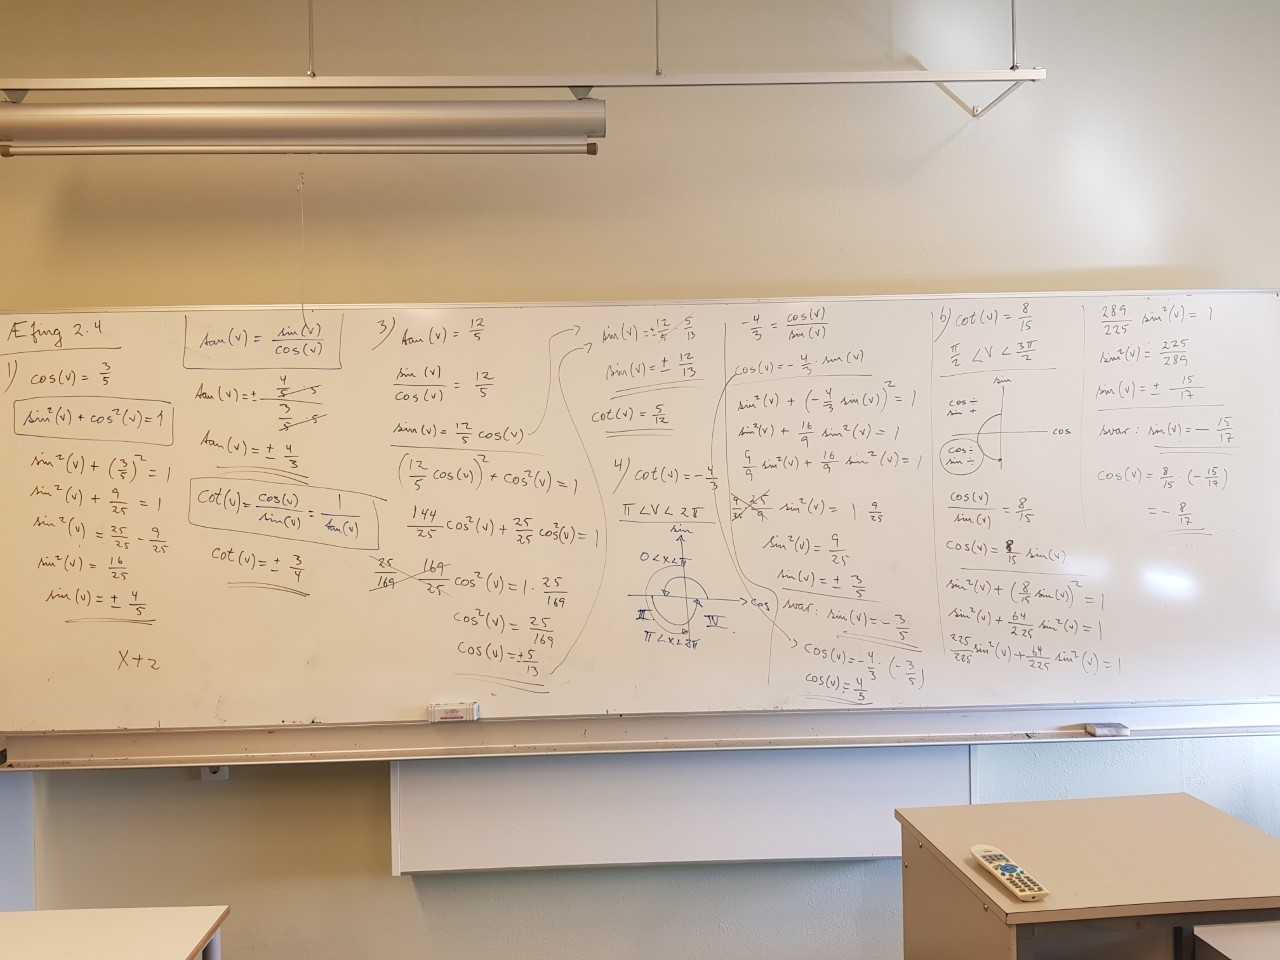 Æfing 2.4
1)
cos(v) = 3/5
sin²(v) + cos²(v) = 1
sin²(v) + (3/5)² = 1
sin²(v) + 9/25 = 1
sin²(v) = 25/25 - 9/25
sin²(v) = 16/25
sin(v) = ± 4/5
x+2
tan(v) = sin(v)/cos(v)
tan(v) = ± 4/5 · 5 / 3/5 · 5
tan(v) = ± 4/3
cot(v) = cos(v)/sin(v) = 1/tan(v)
cot(v) = ± 3/4
3) tan(v) = 12/5
sin(v)/cos(v) = 12/5
sin(v) = 12/5 cos(v)
(12/5 cos(v))² + cos²(v) = 1
144/25 cos²(v) + 25/25 cos²(v) = 1
25/169 169/25 cos²(v) = 1 · 25/169
cos²(v) = 25/169
cos(v) = ± 5/13
sin(v) = ± 12/5 · 5/13
sin(v) = ± 12/13
cot(v) = 5/12
4) cot(v) = - 4/3
π < v < 2π
sin
0 < x < π
cos
III IV
π < x < 2π
- 4/3 = cos(v)/sin(v)
cos(v) = - 4/3 · sin(v)
sin²(v) + (- 4/3 sin(v))² = 1
sin²(v) + 16/9 sin²(v) = 1
9/9 sin²(v) + 16/9 sin²(v) = 1
9/25 25/9 sin²(v) = 1 9/25
sin²(v) = 9/25
sin(v) = ± 3/5
svar: sin(v) = - 3/5
cos(v) = - 4/3 · (- 3/5)
cos(v) = 4/5
b) cot(v) = 8/15
π/2 < v < 3π/2
sin
cos ÷
sin +
cos
cos ÷
sin ÷
cos(v)/sin(v) = 8/15
cos(v) = 8/15 sin(v)
sin²(v) + (8/15 sin(v))² = 1
sin²(v) + 64/225 sin²(v) = 1
225/225 sin²(v) + 64/225 sin²(v) = 1
289/225 sin²(v) = 1
sin²(v) = 225/289
sin(v) = ± 15/17
svar: sin(v) = - 15/17
cos(v) = 8/15 · (- 15/17)
= - 8/17